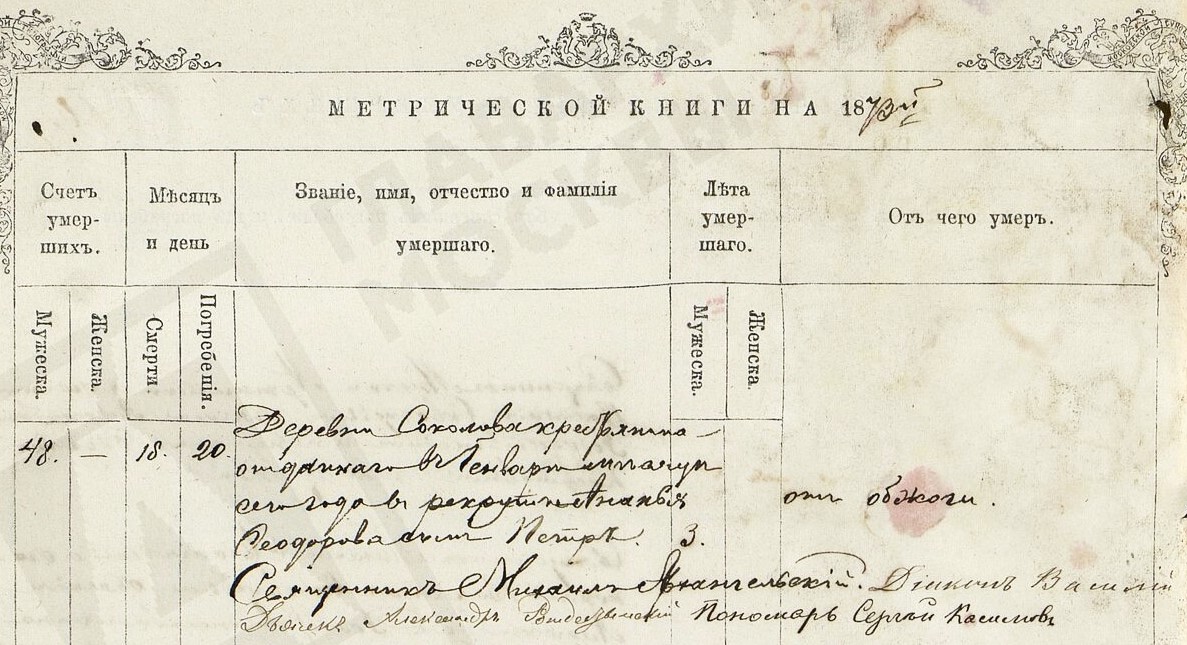 МЕТРИЧЕСКОЙ КНИГИ НА 1873й
Счетъ умер-
шихъ.
Мѣсяцъ
и день
Званіе, имя, отчество и фамилія
умершаго.
Лѣта
умер-
шаго.
Отъ чего умеръ.
Мужеска.
Женска.
Смерти.
Погребенія.
Мужеска.
Женска.
Деревни Соколова крестьянина
48. — 18. 20. отданнаго въ Генварѣ
сего года въ рекруты Ананья от обжоги.
Феодорова сынъ Петръ. 3.
Священникъ Михаилъ Архангельскій. Діаконъ Василій
Дьячекъ Александръ Пономарь Сергѣй Касимовъ
ГЛАВАРХИВ
МОСКВЫ